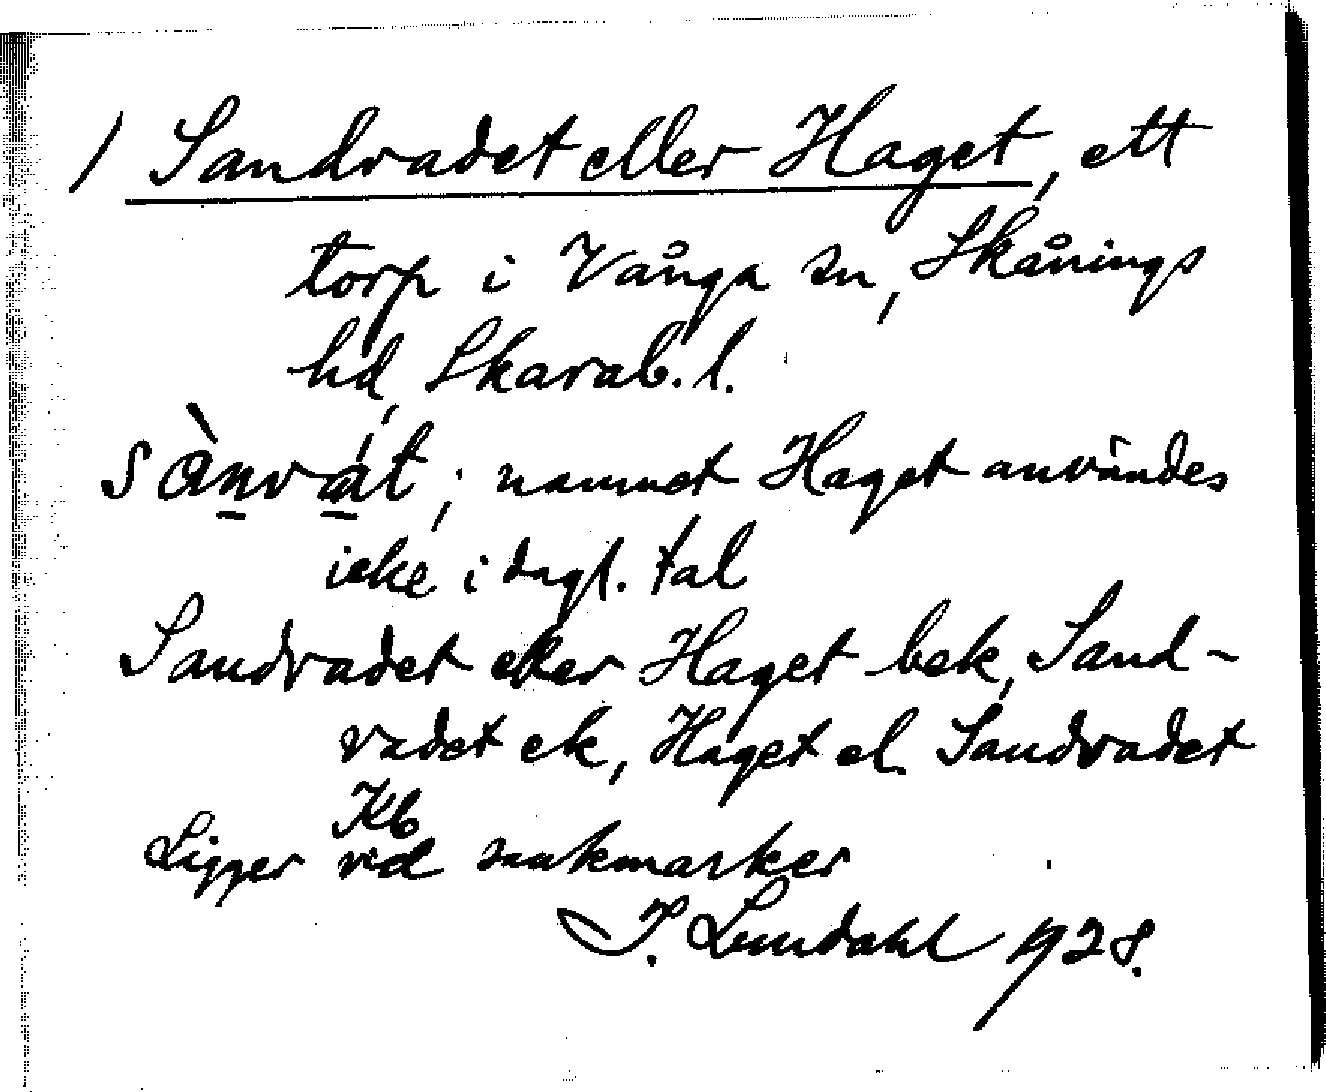 1 Sandvadet eller Haget, ett
torp i Vånga sn, Skånings
hd, Skarab. l.
sànvát; namnet Haget användes
icke i dagl. tal
Sandvadet eller Haget bek, Sand-
vadet ek, Haget el. Sandvadet
Kb
Ligger vid sankmarker
I. Lundahl 1928.